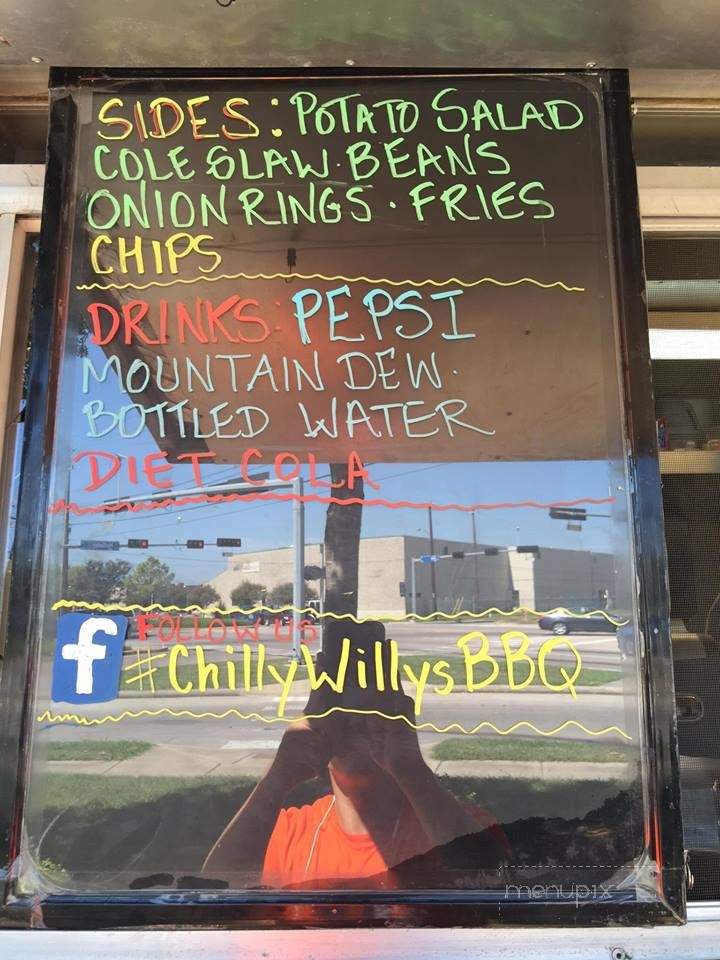 SIDES: POTATO SALAD
COLE SLAW · BEANS
ONION RINGS · FRIES
CHIPS
DRINKS: PEPSI
MOUNTAIN DEW ·
BOTTLED WATER
DIET COLA
f FOLLOW US
#ChillyWillysBBQ
menupix